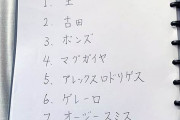 1. 王
2. 古田
3. ボンズ
4. マグガイヤ
5. アレックスロドリゲス
6. ゲレーロ
7. オージースミス